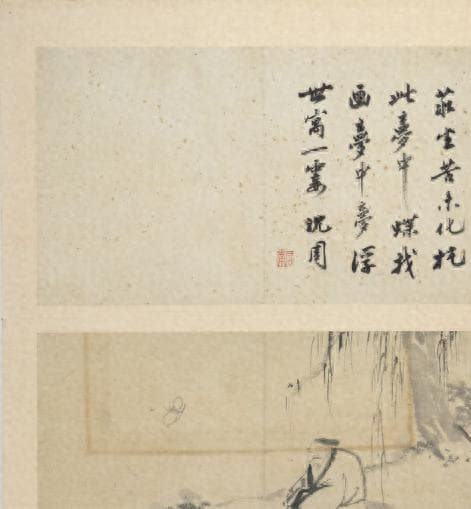 莊生苦未化托
此夢中蝶我
画夢中夢浮
世寓一霎 沈周